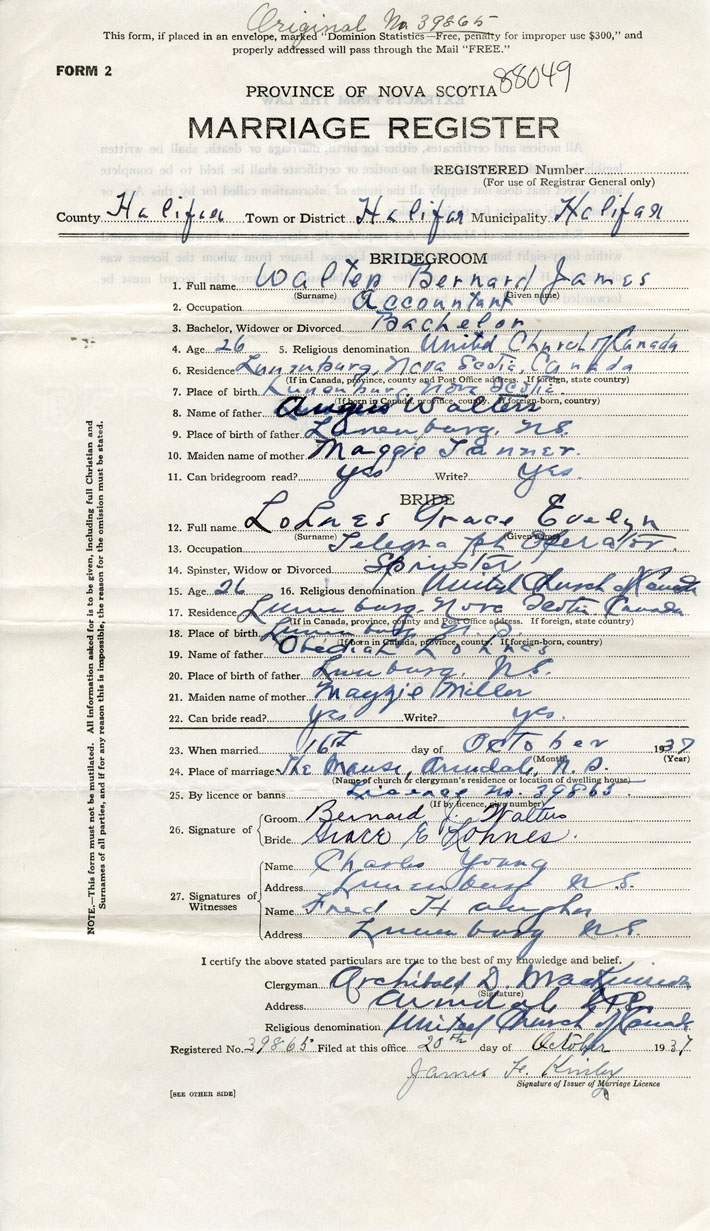 Original No. 39865
This form, if placed in an envelope, marked "Dominion Statistics—Free, penalty for improper use $300," and
properly addressed will pass through the Mail "FREE."
FORM 2
88049
PROVINCE OF NOVA SCOTIA
MARRIAGE REGISTER
REGISTERED Number
(For use of Registrar General only)
County Halifax Town or District Halifax Municipality Halifax
BRIDEGROOM
1. Full name Walters Bernard James
(Surname) (Given name)
2. Occupation Accountant
3. Bachelor, Widower or Divorced Bachelor
4. Age 26 5. Religious denomination United Church of Canada
6. Residence Lunenburg, Nova Scotia, Canada
(If in Canada, province, county and Post Office address. If foreign, state country)
7. Place of birth Lunenburg, Nova Scotia
(If born in Canada, province, county. If foreign-born, country)
8. Name of father Angus Walters
9. Place of birth of father Lunenburg, N.S.
10. Maiden name of mother Maggie Tanner.
11. Can bridegroom read? yes Write? yes.
BRIDE
12. Full name Lohnes Grace Evelyn
(Surname) (Given name)
13. Occupation Telegraph Operator.
14. Spinster, Widow or Divorced Spinster
15. Age 26 16. Religious denomination United Church of Canada
17. Residence Lunenburg, Nova Scotia Canada
(If in Canada, province, county and Post Office address. If foreign, state country)
18. Place of birth Lunenburg N.S.
(If born in Canada, province, county. If foreign-born, country)
19. Name of father Obediah Lohnes
20. Place of birth of father Lunenburg, N.S.
21. Maiden name of mother Maggie Miller
22. Can bride read? yes Write? yes.
23. When married 16th day of October 1937
(Month) (Year)
24. Place of marriage The Manse, Armdale, N.S.
(Name of church or clergyman's residence or location of dwelling house)
25. By licence or banns License no. 39865.
(If by licence, give number)
26. Signature of Groom Bernard J. Walters
Bride Grace E Lohnes.
27. Signatures of Witnesses
Name Charles Young
Address Lunenburg N.S.
Name Fred H
Address Lunenburg N.S.
NOTE.—This form must not be mutilated. All information asked for is to be given, including full Christian and
Surnames of all parties, and if for any reason this is impossible, the reason for the omission must be stated.
I certify the above stated particulars are true to the best of my knowledge and belief.
Clergyman Archibald D. MacKinnon
(Signature)
Address Armdale
Religious denomination United Church of Canada
Registered No. 39865 Filed at this office 20th day of October 1937
James H.
Signature of Issuer of Marriage Licence
[SEE OTHER SIDE]